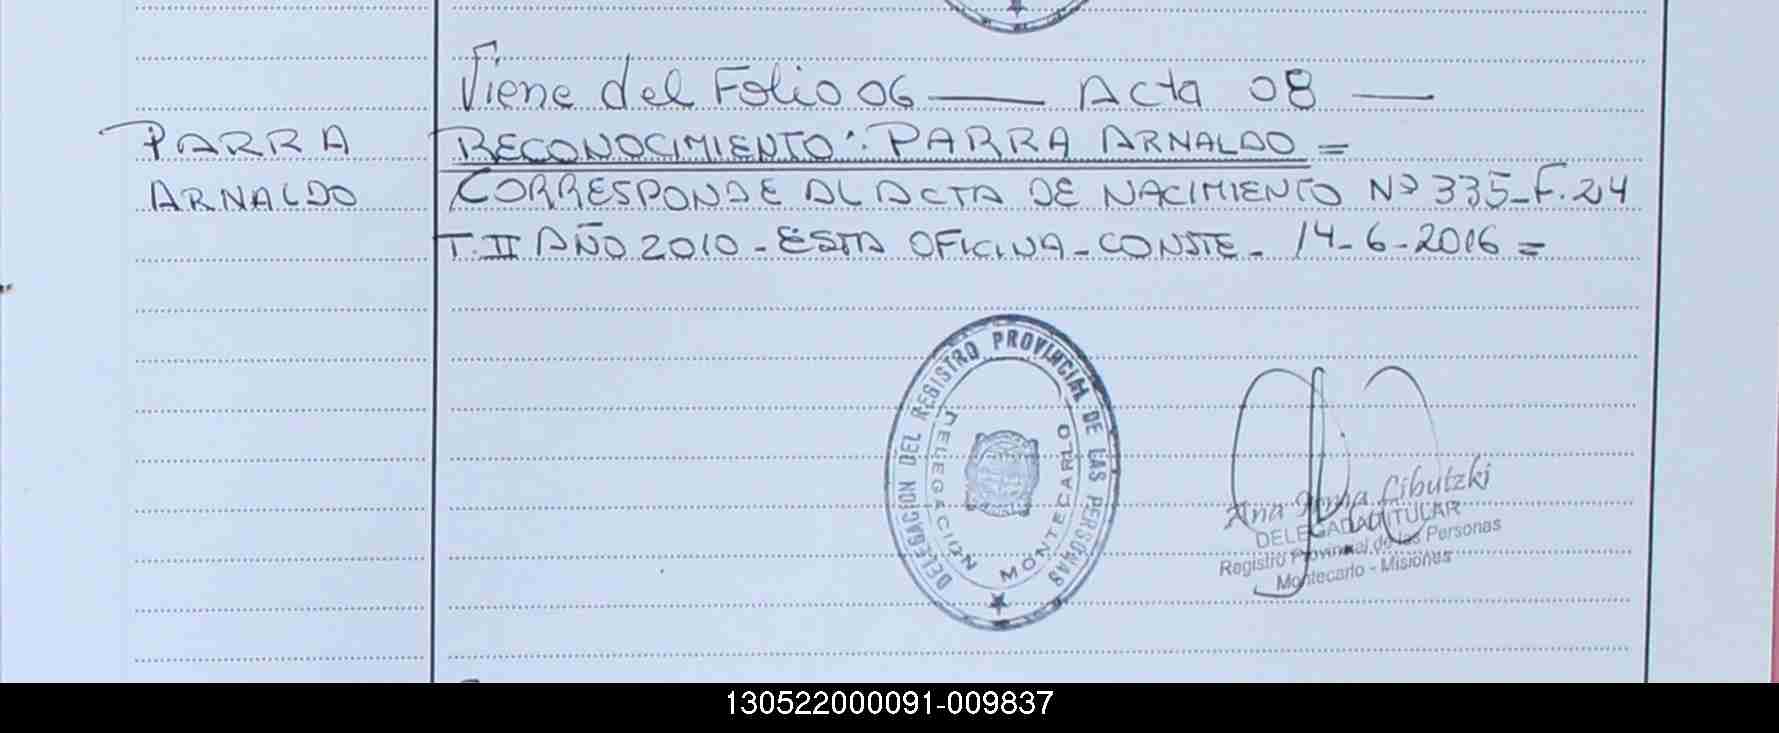 Viene del Folio 06 — Acta 08 —
PARRA
ARNALDO
RECONOCIMIENTO: PARRA ARNALDO =
CORRESPONDE AL ACTA DE NACIMIENTO Nº 335-F.24
T.II AÑO 2010 - ESTA OFICINA - CONSTE - 14-6-2016 =
DELEGACION DEL REGISTRO PROVINCIAL DE LAS PERSONAS
DELEGACION MONTECARLO
Ana Irma Cibutzki
DELEGADA TITULAR
Registro Provincial de las Personas
Montecarlo - Misiones
130522000091-009837